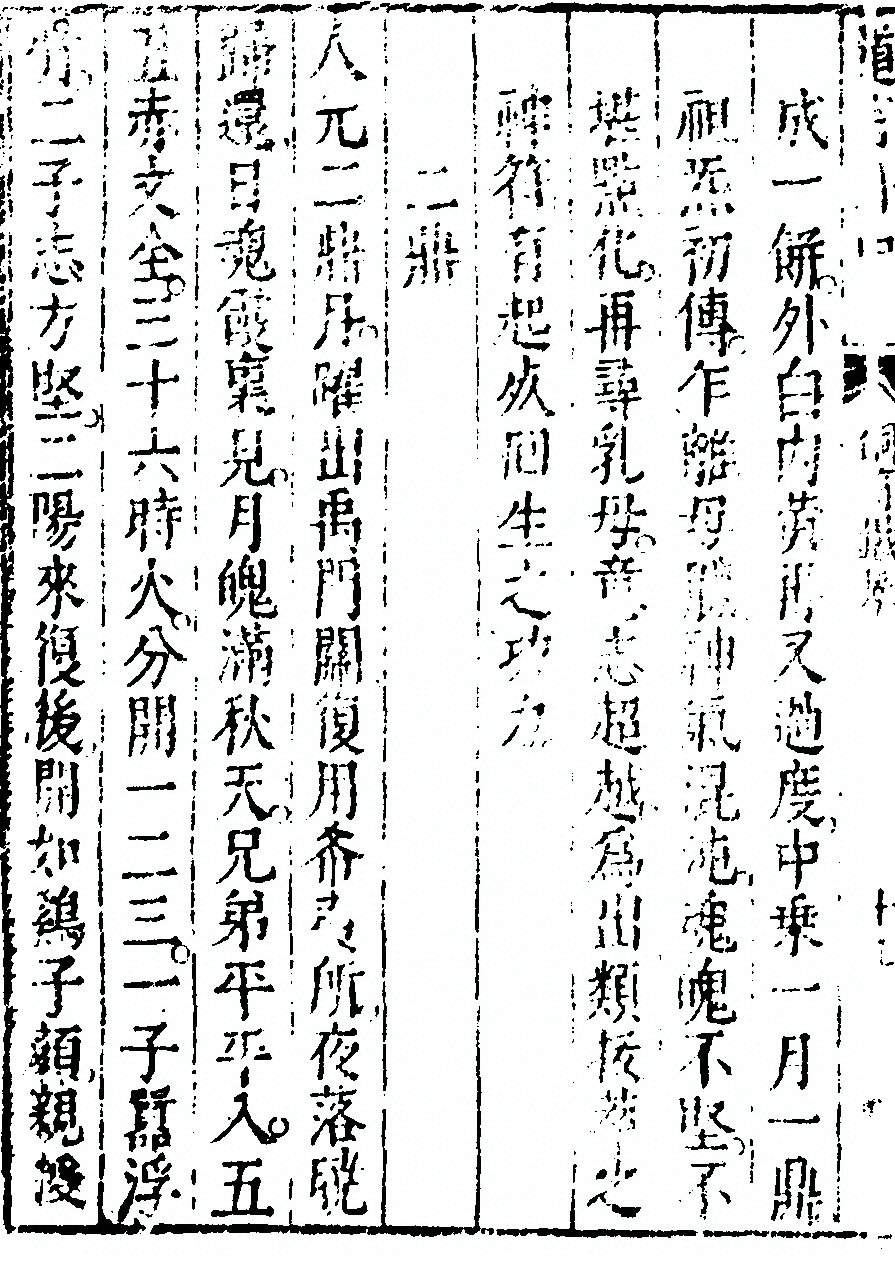 成一餅外白内黄再又過度中乗一月一鼎
祖炁初傳乍離母腹神氣混沌魂魄不堅不
堪點化再尋乳母竟志超越為出類拔萃之
神符有起死回生之功力
二鼎
人元二鼎丹躍出禹門關復用斋所夜落
歸還日魂霞裏見月魄滿秋天兄弟平平入五
五赤文全三十六時火分開一二三一子囂浮
二子志方堅二陽來復後開如鷄子顛親